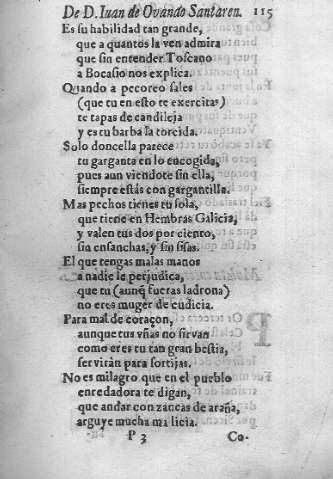 De D. Iuan de Ovando Santaren. 115
Es su habilidad tan grande,
que a quantos la ven admira
que sin entender Toscano
a Bocasio nos explica.
Quando a pecoreo sales
(que tu en esto te exercitas)
te tapas de candileja
y es tu barba la torcida.
Solo doncella parece
tu garganta en lo encogida,
pues aun viendote sin ella,
siempre estás con gargantilla.
Mas pechos tienes tu sola,
que tiene en Hembras Galicia,
y valen tus dos por ciento,
sin ensanchas, y sin sisas.
El que tengas malas manos
a nadie le perjudica,
que tu (aunq̃ fueras ladrona)
no eres muger de cudicia.
Para mal de coraçon,
aunque tus vñas no sirvan
como eres tu tan gran bestia,
serviràn para sortijas.
No es milagro que en el pueblo
enredadora te digan,
que andar con zancas de araña,
arguye mucha malicia.
P 3 Co-